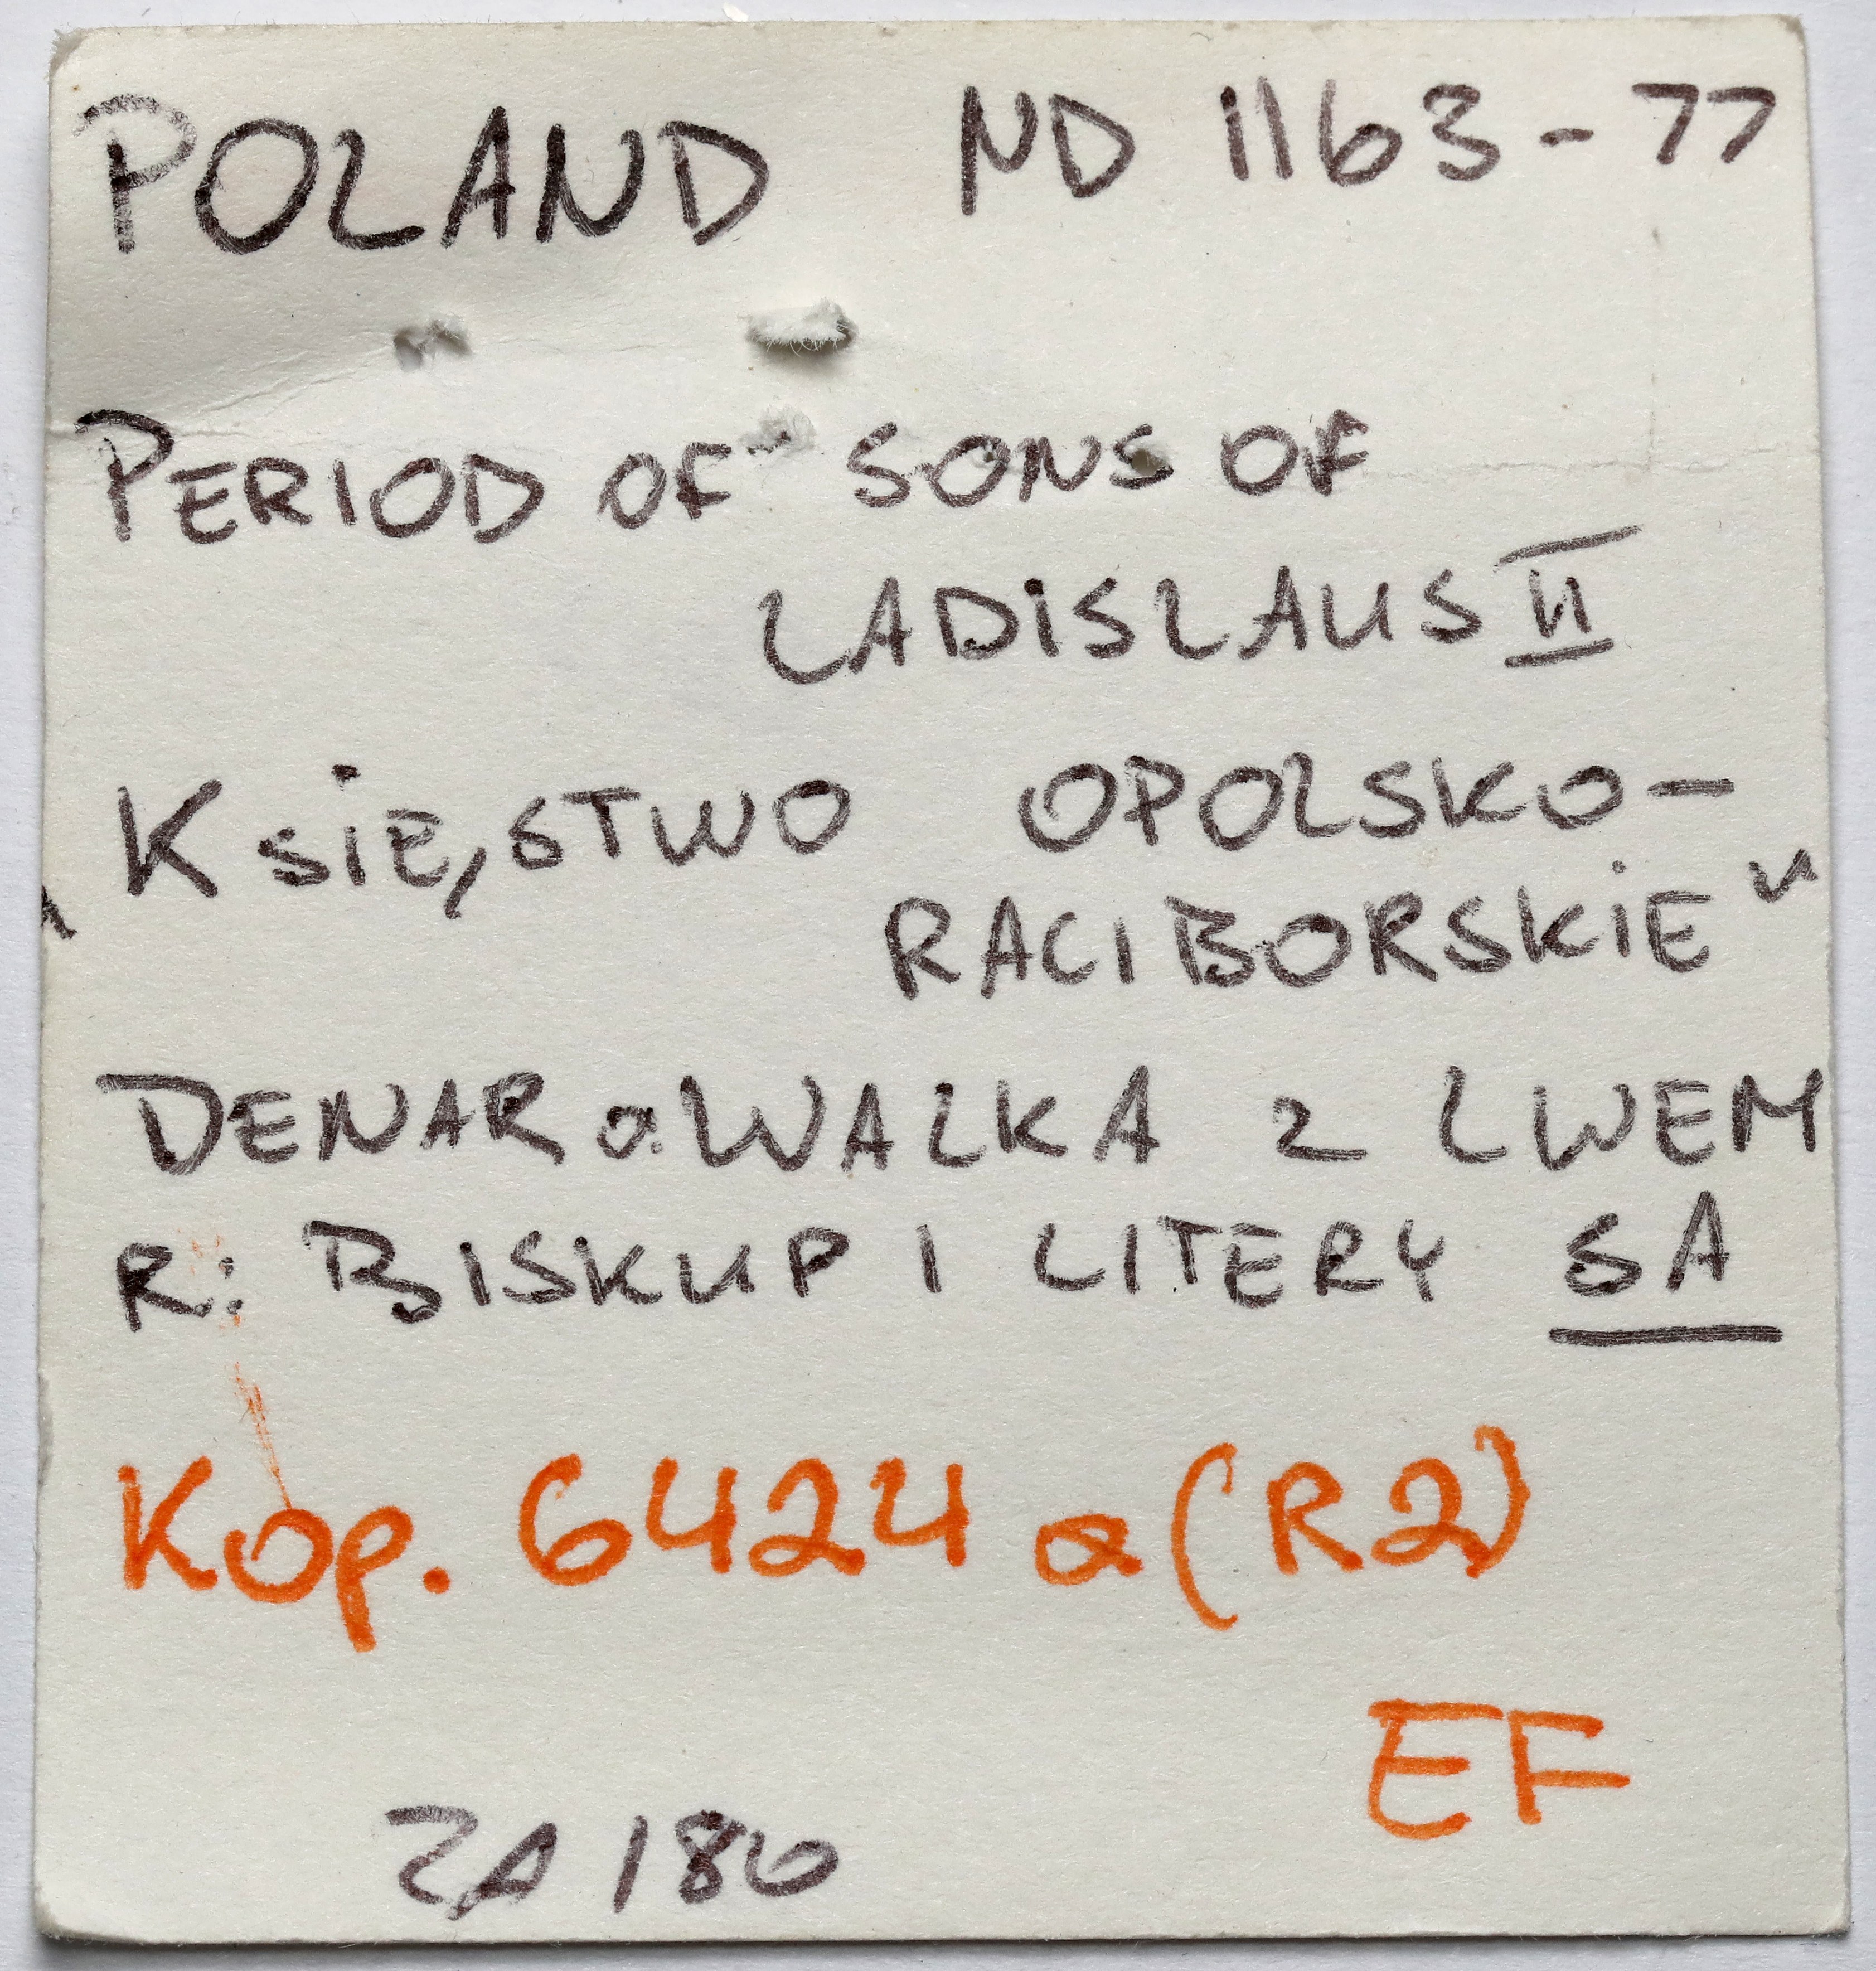 POLAND ND 1163-77
PERIOD OF SONS OF
LADiSLAUS II
„KSiĘSTWO OPOLSKO-
RACIBORSKiE"
DENAR a: WALKA z LWEM
R: BISKUP I LITERY SA
Kop. 6424 a (R2)
EF
180